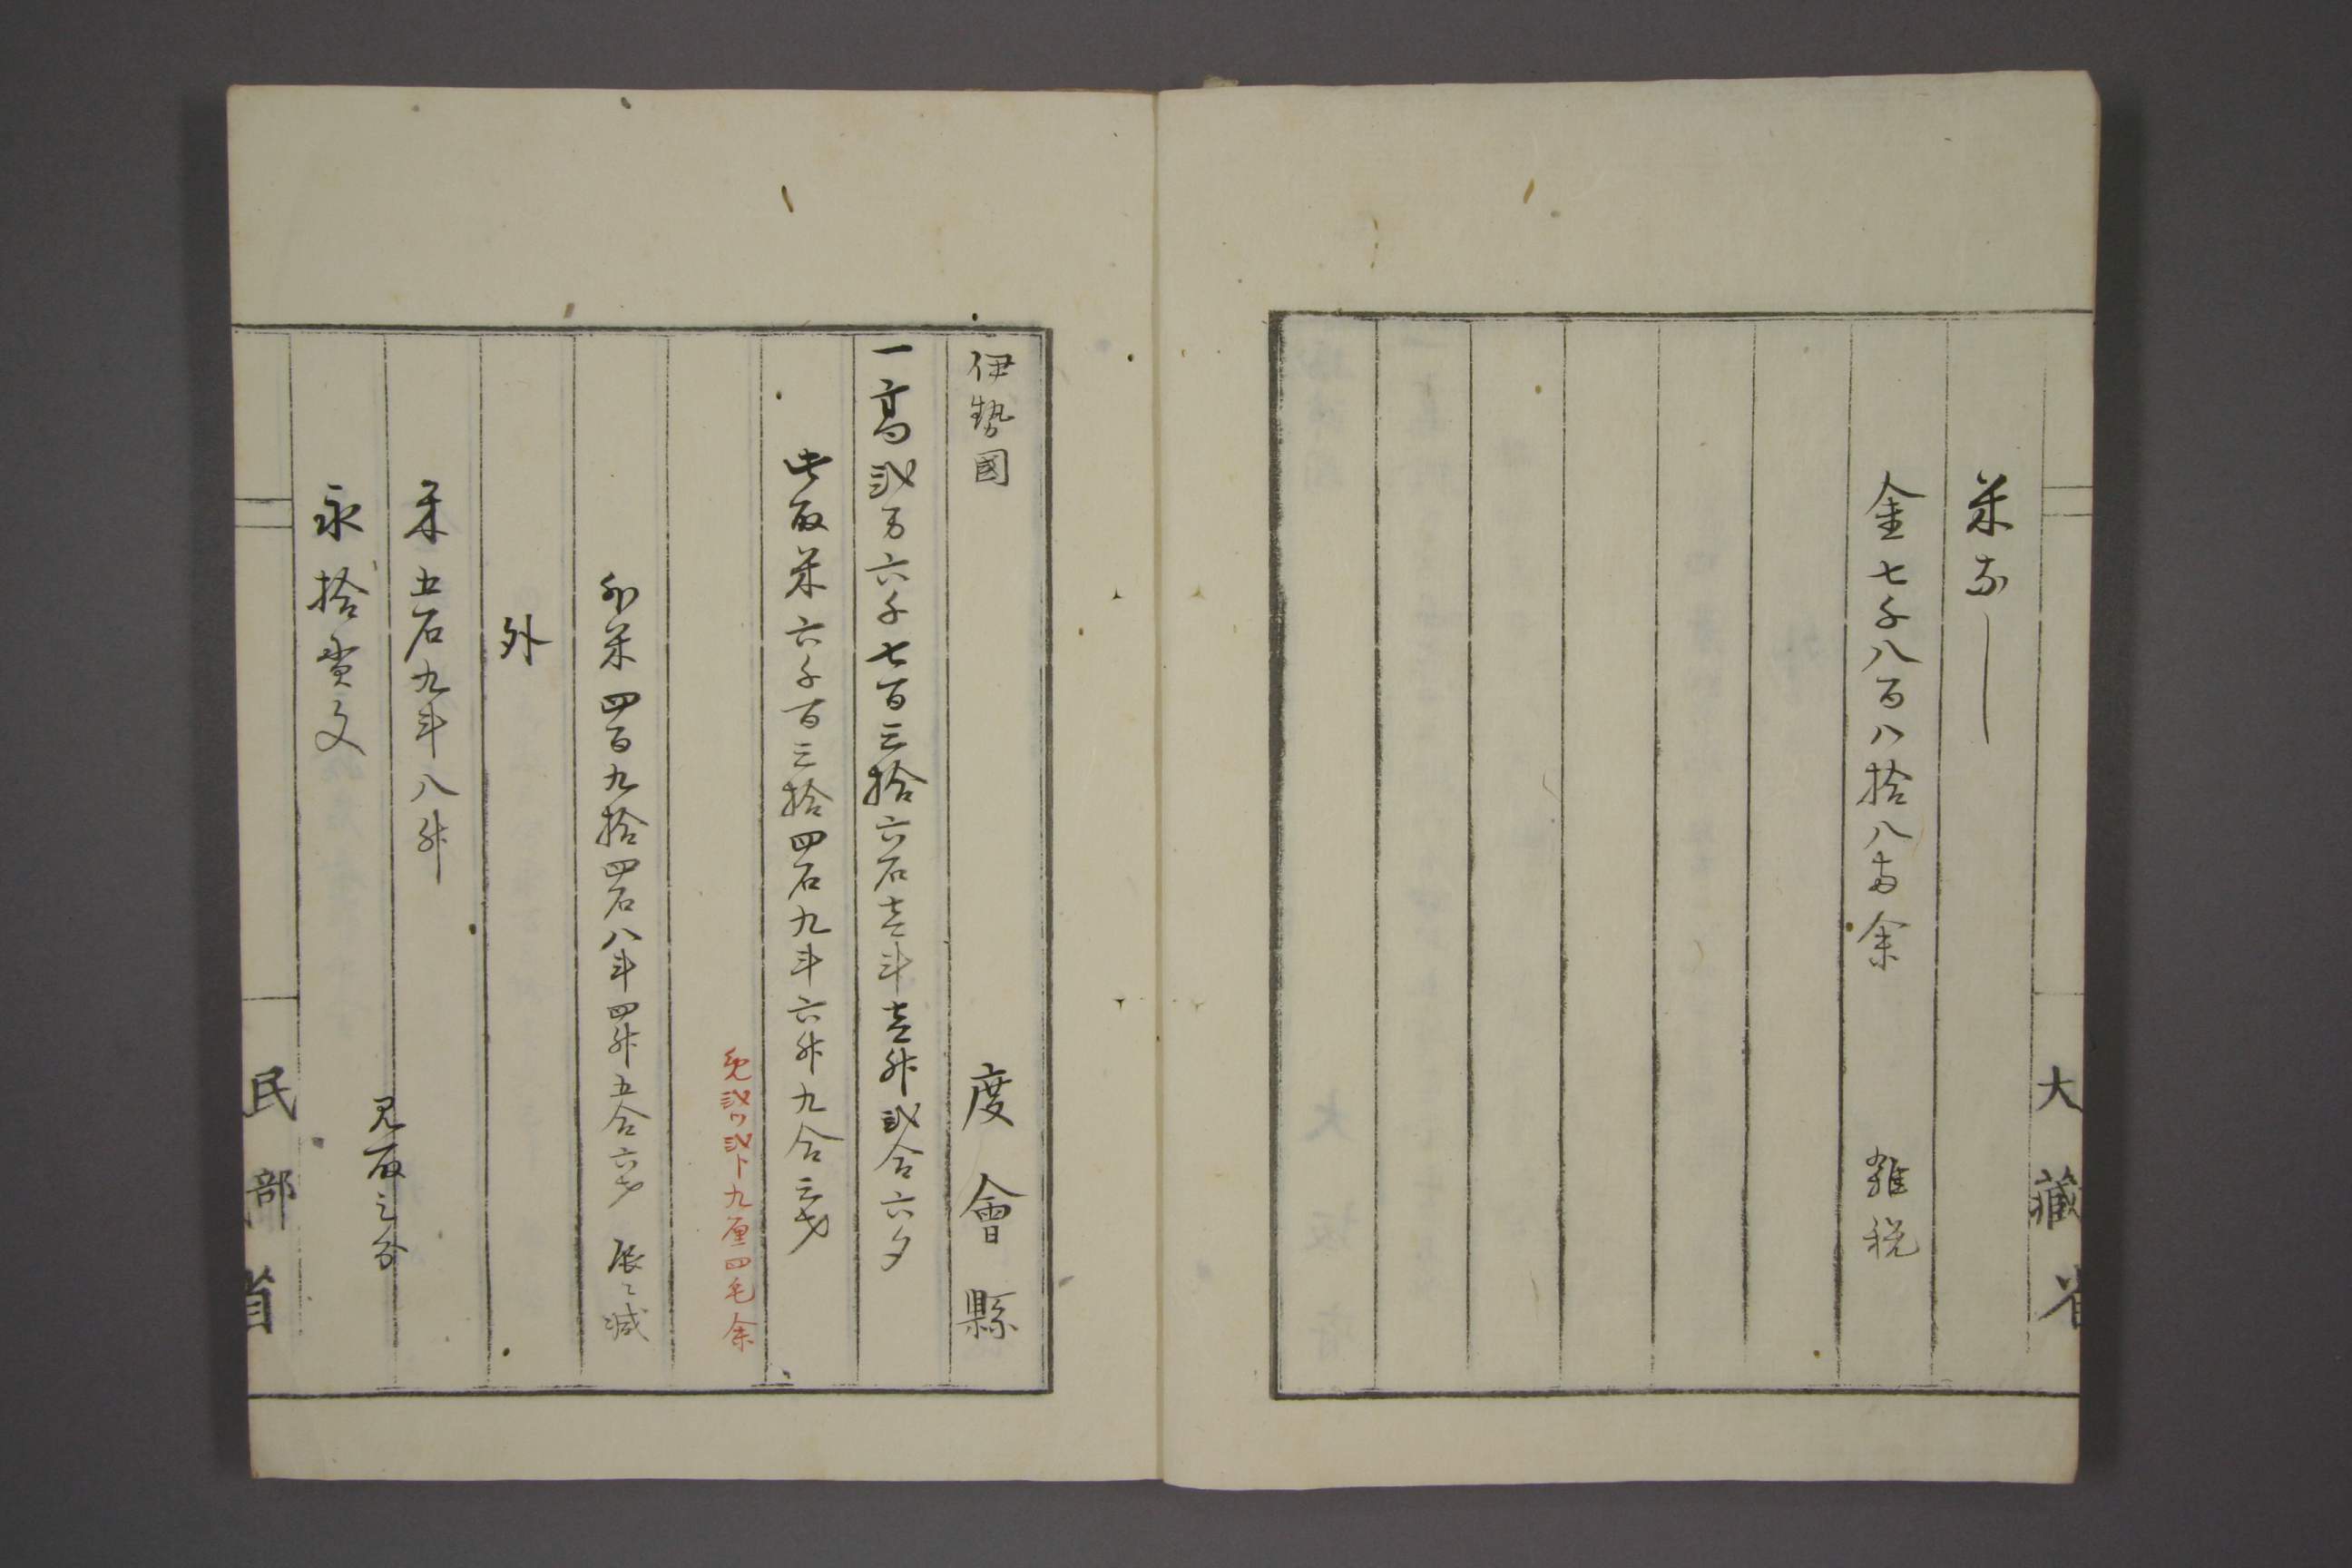 大藏省
米なし
金七千八百八拾八両余 雑税
伊勢國 度會縣
一高弐万六千七百三拾六石壱斗壱升弐合六夕
此取米六千百三拾四石九斗六升九合三才
免弐ツ弐卜九厘四毛余
内米四百九拾四石八斗四升五合六才 辰ゟ減
外
米五石九斗八升
見取之分
永拾貫文
民部省